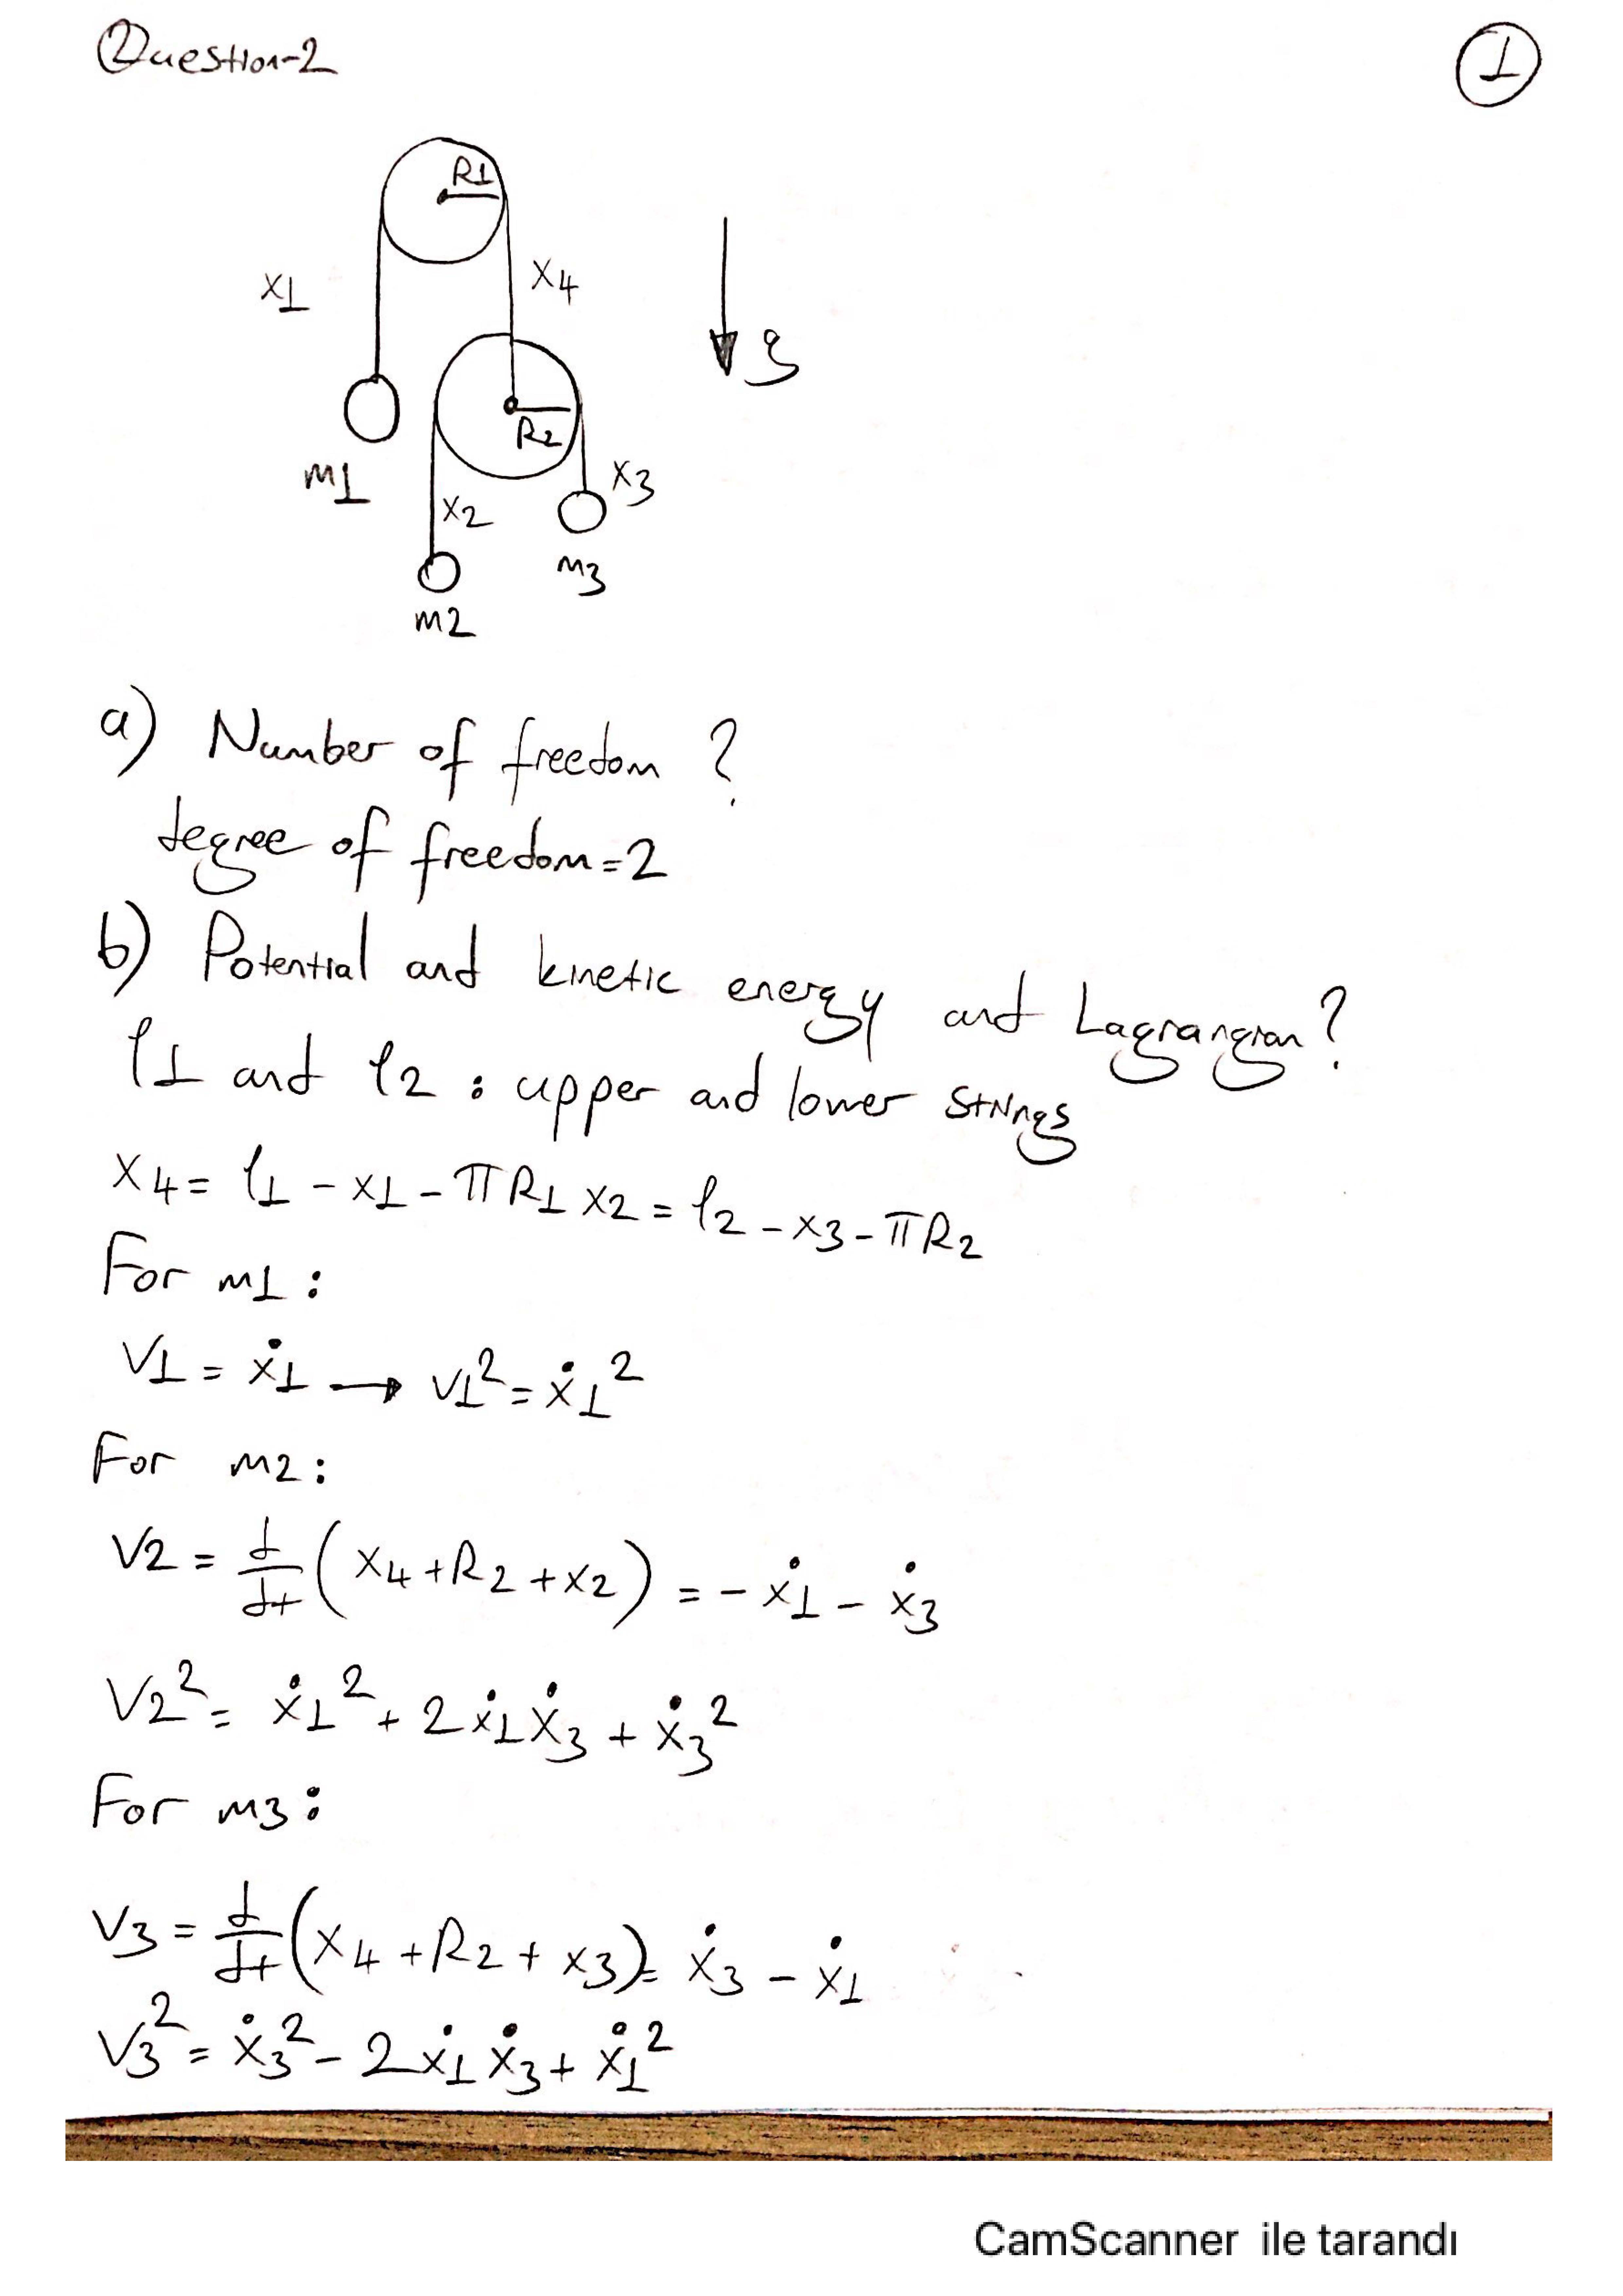 Question-2
1
R1
x1
x4
g
R2
m1
x2
x3
m3
m2
a) Number of freedom ?
degree of freedom = 2
b) Potential and kinetic energy and Lagrangian ?
l1 and l2 : upper and lower strings
x4 = l1 - x1 - πR1 x2 = l2 - x3 - πR2
For m1 :
V1 = ẋ1 → V1² = ẋ1²
For m2 :
V2 = d/dt (x4 + R2 + x2) = - ẋ1 - ẋ3
V2² = ẋ1² + 2ẋ1ẋ3 + ẋ3²
For m3 :
V3 = d/dt (x4 + R2 + x3) = ẋ3 - ẋ1
V3² = ẋ3² - 2ẋ1ẋ3 + ẋ1²
CamScanner ile tarandı